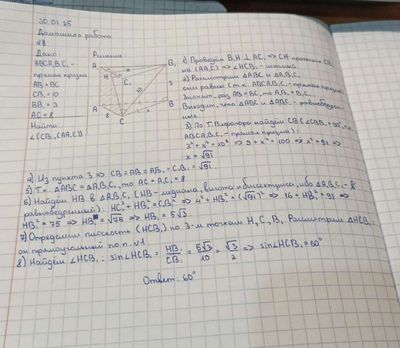 30.01.25
Домашняя работа
№8
Дано:
ABCA₁B₁C₁ -
прямая призма
AB = BC
CB₁ = 10
BB₁ = 3
AC = 8
Найти
∠(CB₁, (AA₁C))
Решение
A₁
H
B₁
C₁
10
3
A
B
8
C
1) Проведём B₁H ⊥ A₁C₁ => CH - проекция CB₁
на (AA₁C) => ∠HCB₁ - искомый
2) Рассмотрим △ABC и △A₁B₁C₁
они равны (т.к. ABCA₁B₁C₁ - прямая призма
Значит, раз AB = BC, то A₁B₁ = B₁C₁
Выходит, что △ABC и △A₁B₁C₁ - равнобедрен-
ные
3) По т. Пифагора найдём CB (∠CBB₁ = 90°, т.к.
ABCA₁B₁C₁ - прямая призма):
3² + x² = 10² => 9 + x² = 100 => x² = 91 =>
x = √91
4) Из пункта 3 => CB = AB = A₁B₁ = C₁B₁ = √91
5) Т.к. △ABC = △A₁B₁C₁, то AC = A₁C₁ = 8
6) Найдём HB₁ в △A₁B₁C₁ (HB₁ - медиана, высота и биссектриса, ибо △A₁B₁C₁ -
равнобедренный): HC₁² + HB₁² = C₁B₁² => 4² + HB₁² = (√91)² => 16 + HB₁² = 91 =>
HB₁² = 75 => HB₁ = √75 => HB₁ = 5√3
7) Определим плоскость (HCB₁) по 3-м точкам H, C, B₁. Рассмотрим △HCB₁ -
он прямоугольный по п. №1
8) Найдём ∠HCB₁: sin∠HCB₁ = HB₁/CB₁ = 5√3/10 = √3/2 => sin∠HCB₁ = 60°
Ответ: 60°